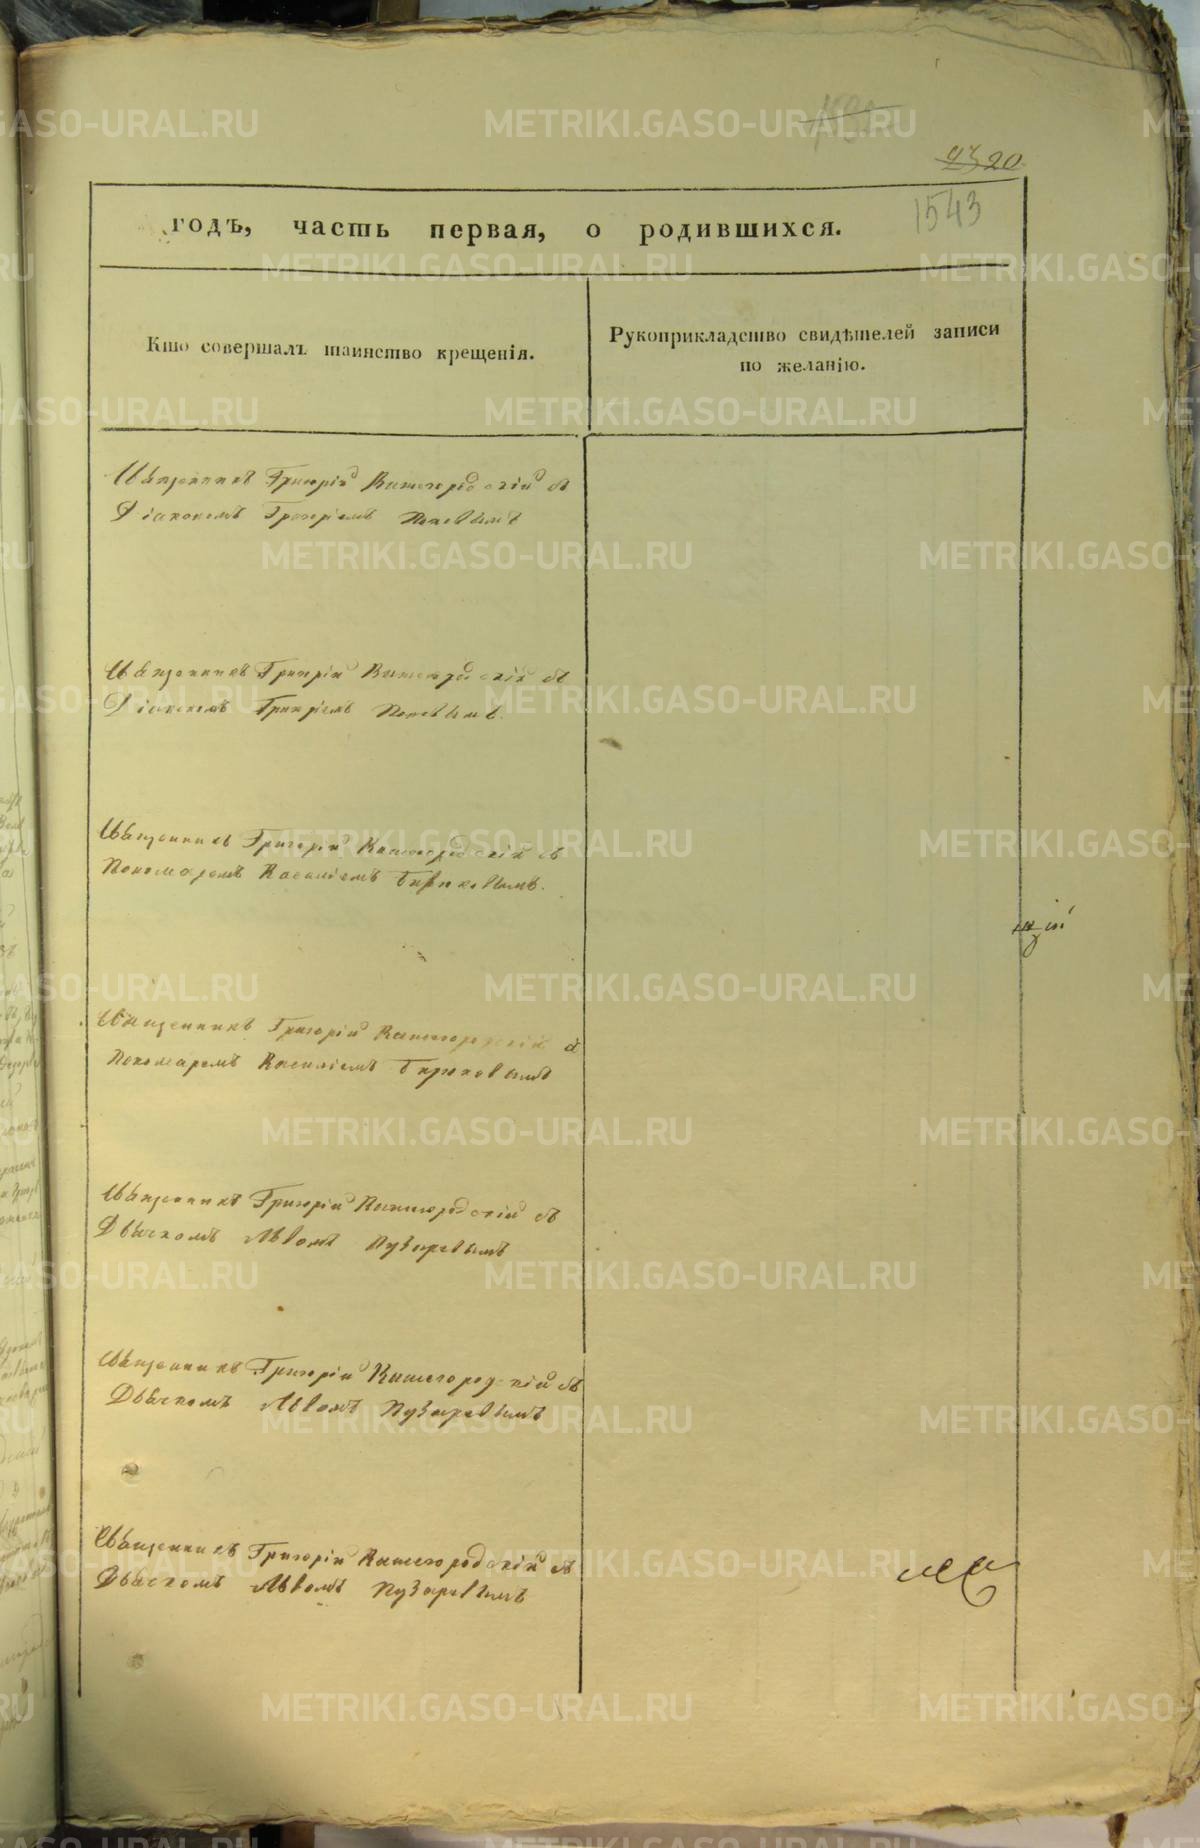 20
1543
годъ, часть первая, о родившихся.
Кто совершалъ таинство крещенія.
Рукоприкладство свидѣтелей записи
по желанію.
Священникъ Григорій Вышегородскій съ
Діакономъ Григоріемъ Поповымъ
Священникъ Григорій Вышегородскій съ
Діакономъ Григоріемъ Поповымъ.
Священникъ Григорій Вышегородскій съ
Пономаремъ Василіемъ Бирюковымъ.
щій
Священникъ Григорій Вышегородскій съ
Пономаремъ Василіемъ Бирюковымъ
Священникъ Григорій Вышегородскій съ
Дьячкомъ Львомъ Пузыревымъ
Священникъ Григорій Вышегородскій съ
Дьячкомъ Львомъ Пузыревымъ
Священникъ Григорій Вышегородскій съ
Дьячкомъ Львомъ Пузыревымъ
METRIKI.GASO-URAL.RU